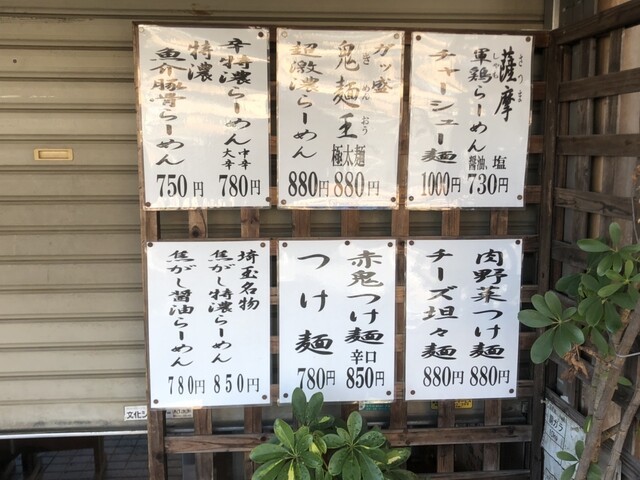 薩摩
さつま
軍鶏らーめん
しゃも
醤油、塩
730円
チャーシュー麺
1000円
ガッ盛
鬼麺王
きめんおう
極太麺
880円
超激濃らーめん
880円
辛特濃らーめん
中辛
大辛
780円
特濃
魚介豚骨らーめん
750円
肉野菜つけ麺
880円
チーズ坦々麺
880円
赤鬼つけ麺
辛口
850円
つけ麺
780円
埼玉名物
焦がし特濃らーめん
850円
焦がし醤油らーめん
780円
文化シ